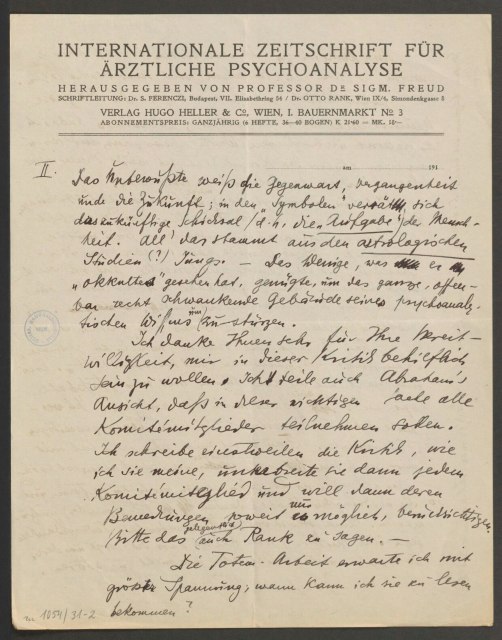 INTERNATIONALE ZEITSCHRIFT FÜR
ÄRZTLICHE PSYCHOANALYSE
HERAUSGEGEBEN VON PROFESSOR DR SIGM. FREUD
SCHRIFTLEITUNG: Dr. S. FERENCZI, Budapest, VII. Elisabethring 54 / Dr. OTTO RANK, Wien IX/4, Simondenkgasse 8
VERLAG HUGO HELLER & Co, WIEN, I. BAUERNMARKT No 3
ABONNEMENTSPREIS: GANZJÄHRIG (6 HEFTE, 36—40 BOGEN) K 21·60 = MK. 18·—
am 191
II.
Das Unbewußte weiß die Gegenwart, Vergangenheit
und die Zukunft; in den Symbolen verrät sich
das zukünftige Schicksal / d. h. die „Aufgabe“ / der Mensch-
heit. All das stammt aus den astrologischen
Studien (?) Jungs. — Das Wenige, was er
„okkultes“ gesehen hat, genügte, um das ganze, offen-
bar recht schwankende Gebäude seines psychoanaly-
tischen Wissens umzustürzen.
Ich danke Ihnen sehr für Ihre Bereit-
willigkeit, mir in dieser Kritik behilflich
sein zu wollen. Ich teile auch Abraham's
Ansicht, daß in dieser wichtigen Sache alle
Komitémitglieder teilnehmen sollen.
Ich schreibe einstweilen die Kritik, wie
ich sie meine, unterbreite sie dann jedem
Komitémitglied und will dann deren
Bemerkungen soweit nur möglich, berücksichtigen.
Bitte das gelegentlich auch Rank zu sagen. —
Die Totem-Arbeit erwarte ich mit
größter Spannung; wann kann ich sie zu lesen
bekommen?
1054/31-2